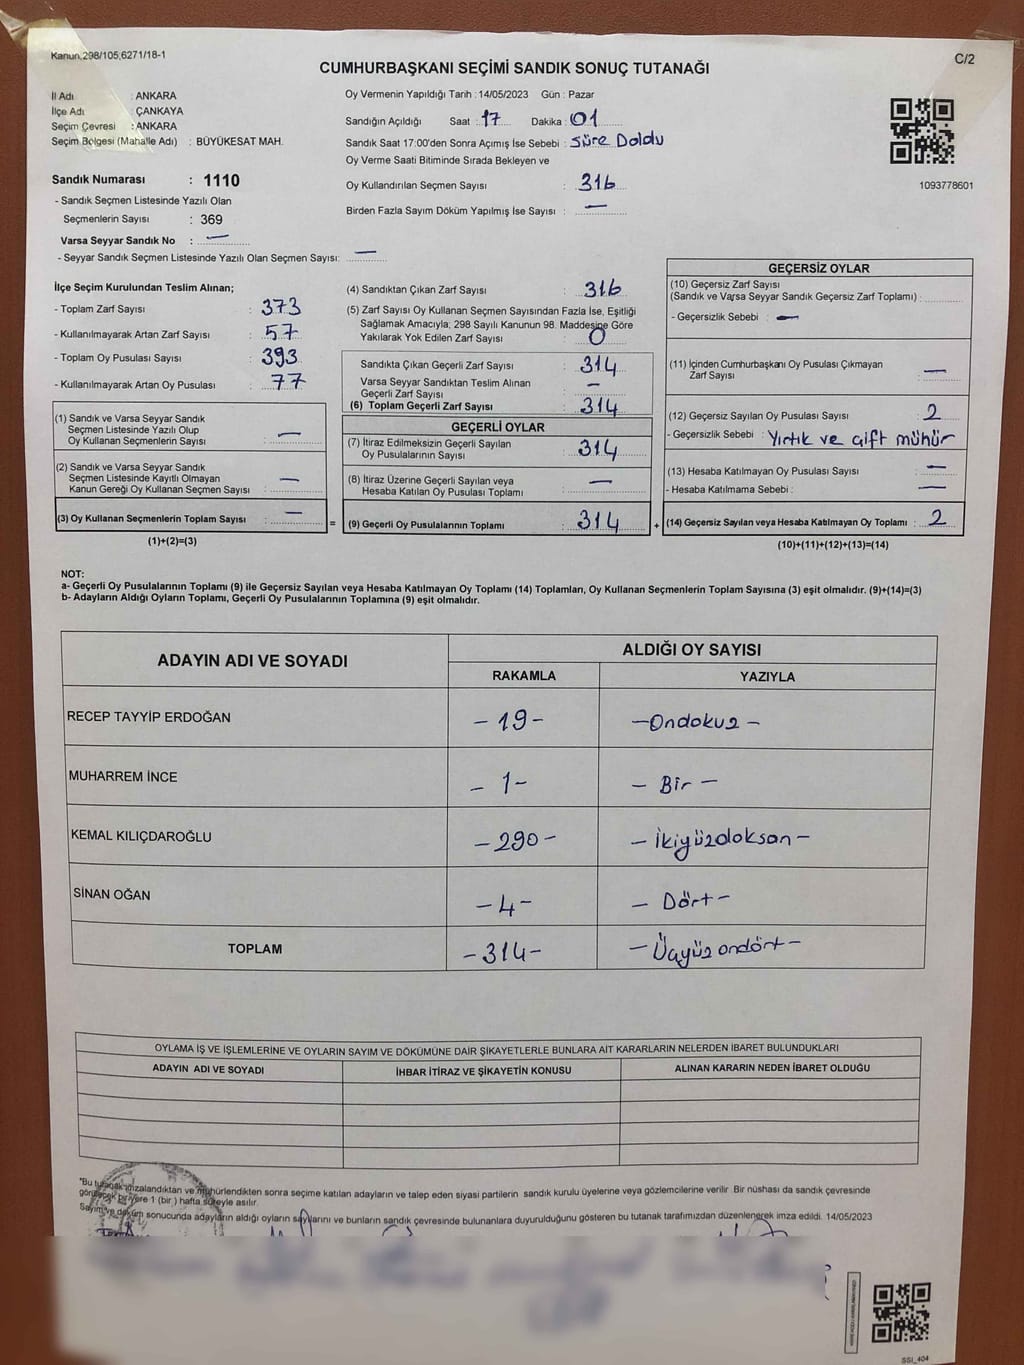 Kanun,298/105,6271/18-1
C/2
CUMHURBAŞKANI SEÇİMİ SANDIK SONUÇ TUTANAĞI
İl Adı : ANKARA
İlçe Adı : ÇANKAYA
Seçim Çevresi : ANKARA
Seçim Bölgesi (Mahalle Adı) : BÜYÜKESAT MAH.
Sandık Numarası : 1110
- Sandık Seçmen Listesinde Yazılı Olan
Seçmenlerin Sayısı : 369
Varsa Seyyar Sandık No : —
- Seyyar Sandık Seçmen Listesinde Yazılı Olan Seçmen Sayısı: —
Oy Vermenin Yapıldığı Tarih : 14/05/2023 Gün : Pazar
Sandığın Açıldığı Saat : 17 Dakika : 01
Sandık Saat 17:00'den Sonra Açımış İse Sebebi : Süre Doldu
Oy Verme Saati Bitiminde Sırada Bekleyen ve
Oy Kullandırılan Seçmen Sayısı : 316
Birden Fazla Sayım Döküm Yapılmış İse Sayısı : —
1093778601
İlçe Seçim Kurulundan Teslim Alınan;
- Toplam Zarf Sayısı : 373
- Kullanılmayarak Artan Zarf Sayısı : 57
- Toplam Oy Pusulası Sayısı : 393
- Kullanılmayarak Artan Oy Pusulası : 77
(1) Sandık ve Varsa Seyyar Sandık
Seçmen Listesinde Yazılı Olup
Oy Kullanan Seçmenlerin Sayısı : —
(2) Sandık ve Varsa Seyyar Sandık
Seçmen Listesinde Kayıtlı Olmayan
Kanun Gereği Oy Kullanan Seçmen Sayısı : —
(3) Oy Kullanan Seçmenlerin Toplam Sayısı : —
(1)+(2)=(3)
=
(4) Sandıktan Çıkan Zarf Sayısı : 316
(5) Zarf Sayısı Oy Kullanan Seçmen Sayısından Fazla İse, Eşitliği
Sağlamak Amacıyla; 298 Sayılı Kanunun 98. Maddesine Göre
Yakılarak Yok Edilen Zarf Sayısı : 0
Sandıkta Çıkan Geçerli Zarf Sayısı : 314
Varsa Seyyar Sandıktan Teslim Alınan
Geçerli Zarf Sayısı : —
(6) Toplam Geçerli Zarf Sayısı : 314
GEÇERLİ OYLAR
(7) İtiraz Edilmeksizin Geçerli Sayılan
Oy Pusulalarının Sayısı : 314
(8) İtiraz Üzerine Geçerli Sayılan veya
Hesaba Katılan Oy Pusulası Toplamı : —
(9) Geçerli Oy Pusulalarının Toplamı : 314
+
GEÇERSİZ OYLAR
(10) Geçersiz Zarf Sayısı
(Sandık ve Varsa Seyyar Sandık Geçersiz Zarf Toplamı) :
- Geçersizlik Sebebi : —
(11) İçinden Cumhurbaşkanı Oy Pusulası Çıkmayan
Zarf Sayısı : —
(12) Geçersiz Sayılan Oy Pusulası Sayısı : 2
- Geçersizlik Sebebi : Yırtık ve çift mühür
(13) Hesaba Katılmayan Oy Pusulası Sayısı : —
- Hesaba Katılmama Sebebi : —
(14) Geçersiz Sayılan veya Hesaba Katılmayan Oy Toplamı : 2
(10)+(11)+(12)+(13)=(14)
NOT:
a- Geçerli Oy Pusulalarının Toplamı (9) ile Geçersiz Sayılan veya Hesaba Katılmayan Oy Toplamı (14) Toplamları, Oy Kullanan Seçmenlerin Toplam Sayısına (3) eşit olmalıdır. (9)+(14)=(3)
b- Adayların Aldığı Oyların Toplamı, Geçerli Oy Pusulalarının Toplamına (9) eşit olmalıdır.
ADAYIN ADI VE SOYADI
ALDIĞI OY SAYISI
RAKAMLA YAZIYLA
RECEP TAYYİP ERDOĞAN -19- -Ondokuz-
MUHARREM İNCE -1- -Bir-
KEMAL KILIÇDAROĞLU -290- -İkiyüzdoksan-
SİNAN OĞAN -4- -Dört-
TOPLAM -314- -Üçyüz ondört-
OYLAMA İŞ VE İŞLEMLERİNE VE OYLARIN SAYIM VE DÖKÜMÜNE DAİR ŞİKAYETLERLE BUNLARA AİT KARARLARIN NELERDEN İBARET BULUNDUKLARI
ADAYIN ADI VE SOYADI İHBAR İTİRAZ VE ŞİKAYETİN KONUSU ALINAN KARARIN NEDEN İBARET OLDUĞU
*Bu tutanak imzalandıktan ve mühürlendikten sonra seçime katılan adayların ve talep eden siyasi partilerin sandık kurulu üyelerine veya gözlemcilerine verilir. Bir nüshası da sandık çevresinde
görülecek bir yere 1 (bir) hafta süreyle asılır.
Sayım ve döküm sonucunda adayların aldığı oyların sayılarını ve bunların sandık çevresinde bulunanlara duyurulduğunu gösteren bu tutanak tarafımızdan düzenlenerek imza edildi. 14/05/2023
SSI_404